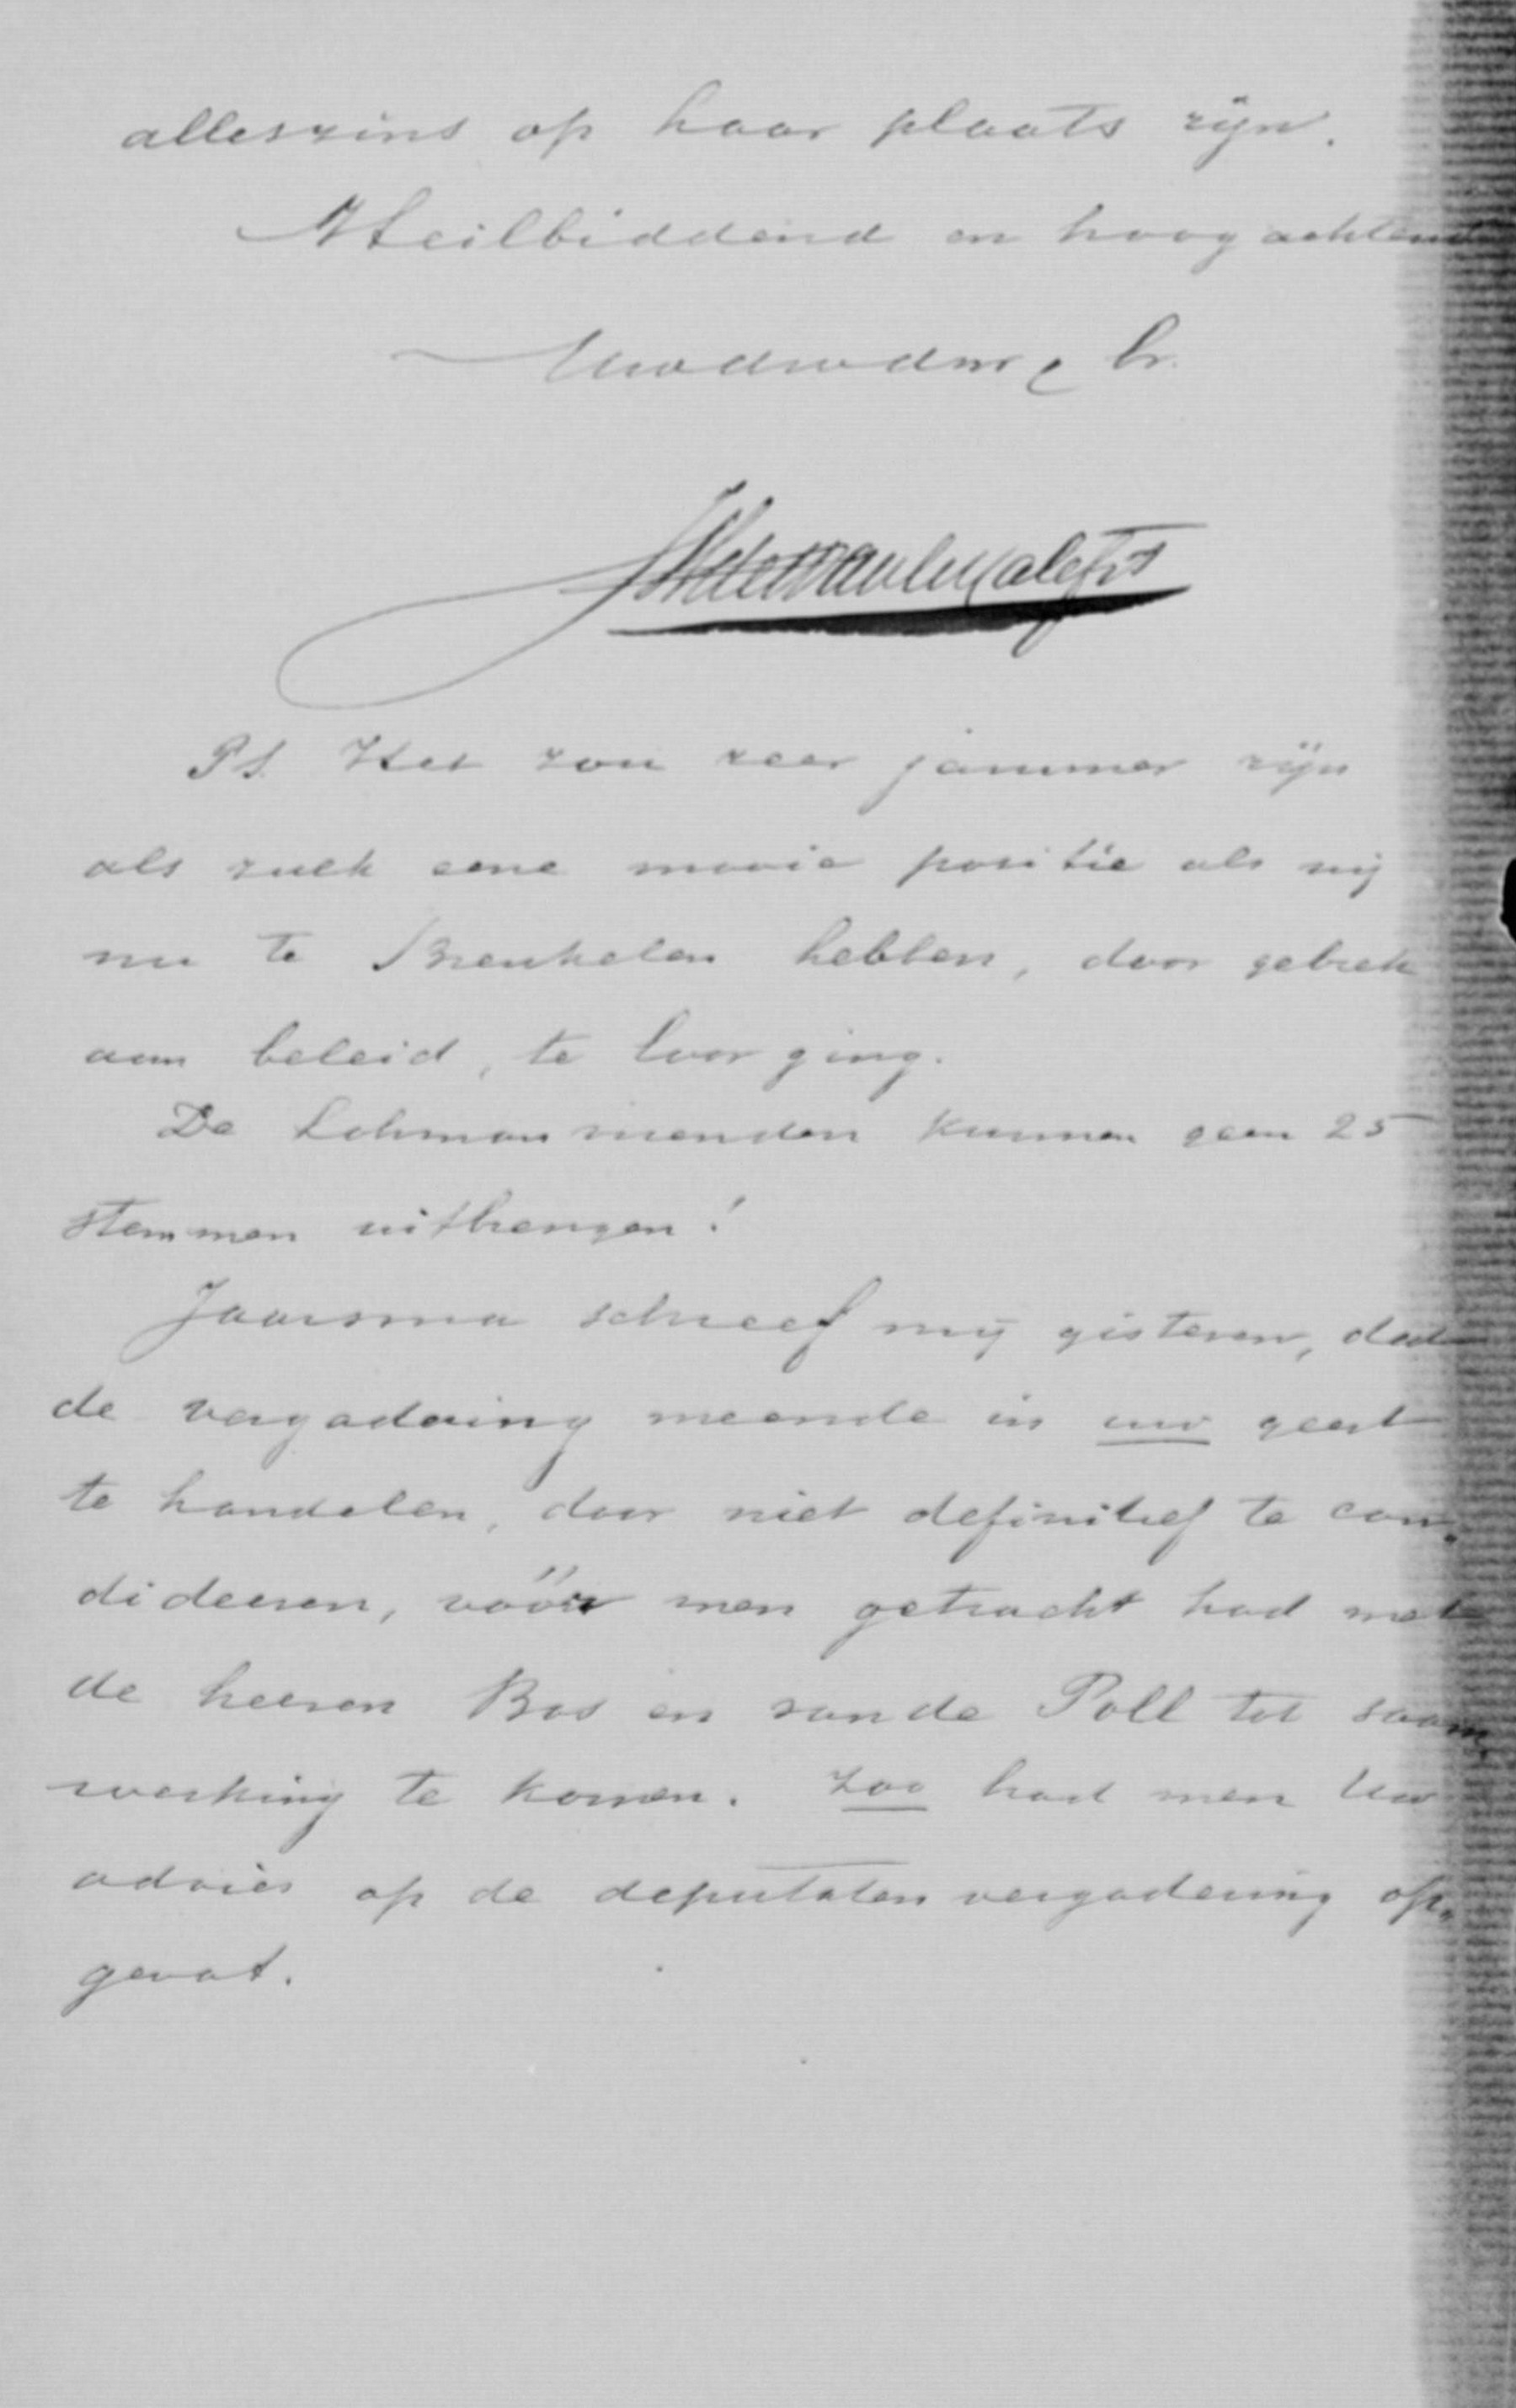 alleszins op haar plaats zijn.
Heilbiddend en hoogachtend
Uwdwdnr & br.
PS. Het zou zeer jammer zijn
als zulk eene mooie positie als wij
nu te Breukelen hebben, door gebrek
aan beleid, te loor ging.
De Lohman vrienden kunnen geen 25
stemmen uitbrengen!
Jaarsma schreef mij gisteren, dat
de vergadering meende in uw geest
te handelen, door niet definitief te can„
dideeren, vóór men getracht had met
de heeren Bos en van de Poll tot saam„
werking te komen. Zoo had men Uw
advies op de deputaten vergadering op„
gevat.